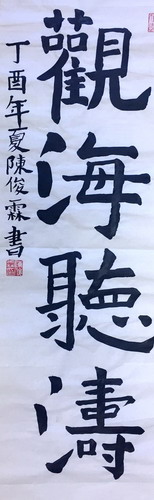 觀海聽濤
丁酉年夏陳俊霖書